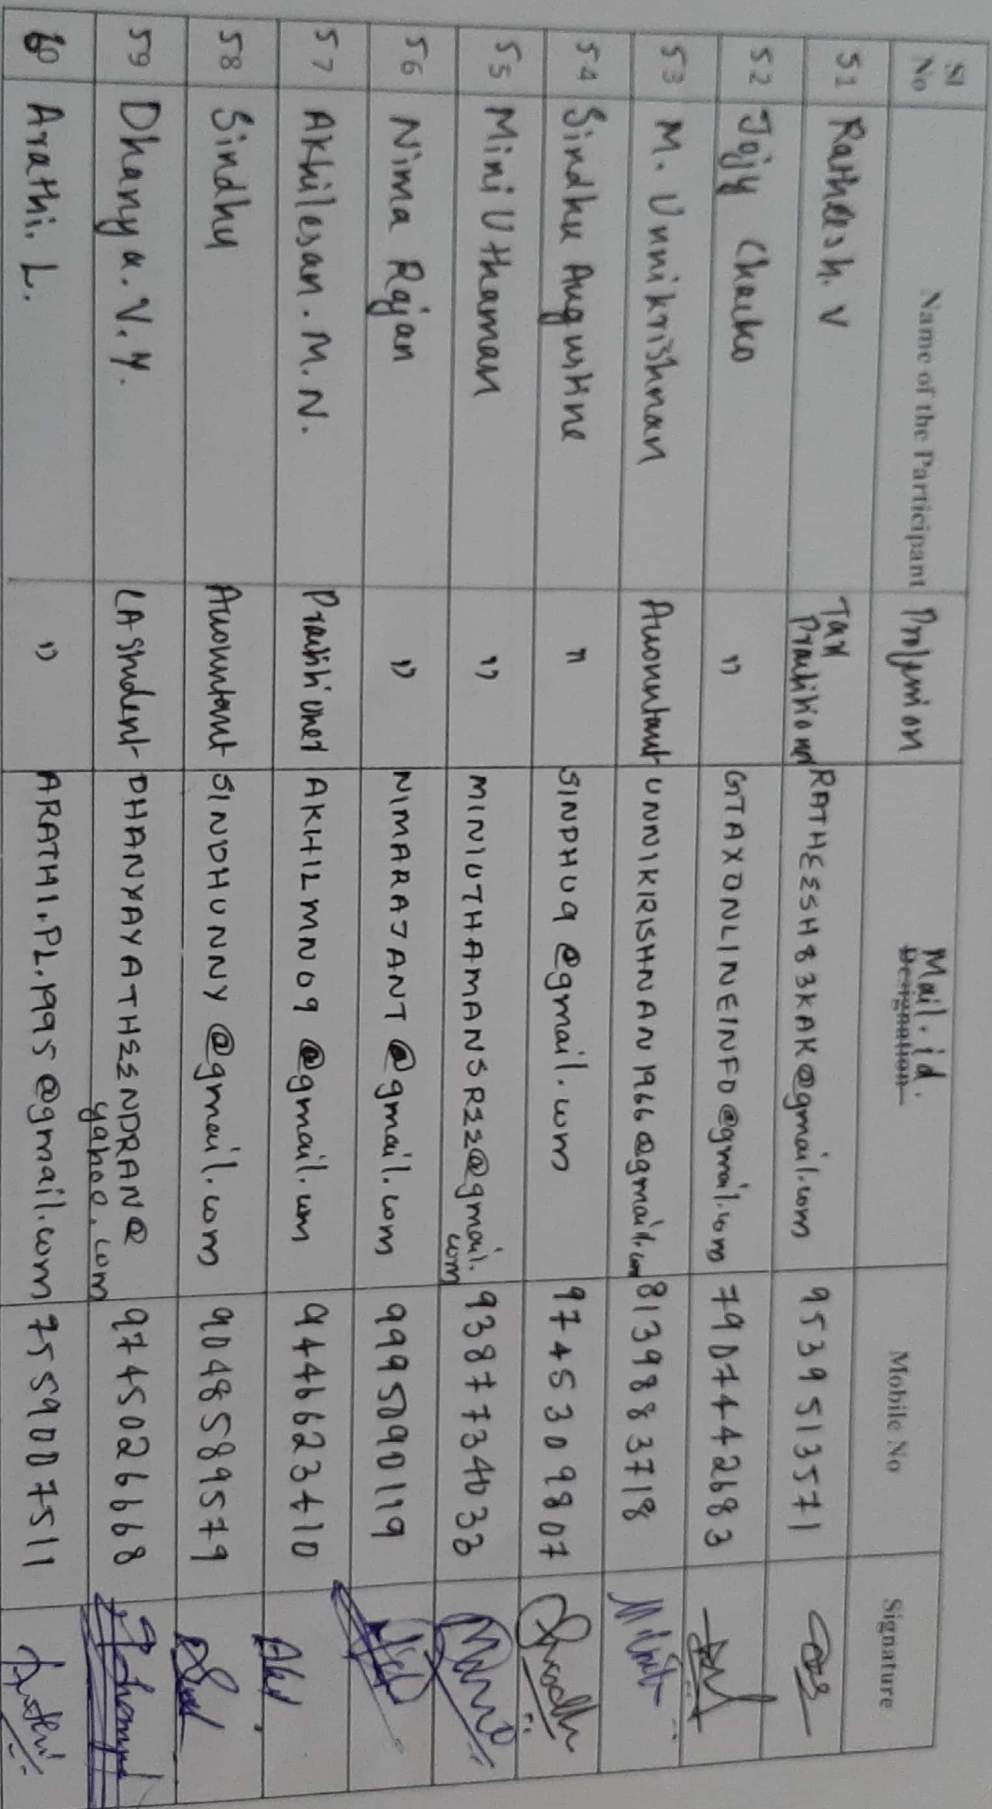 Sl No Name of the Participant Profession Mail.id Designation Mobile No Signature
51 Ratheesh. V Tax Practitioner RATHEESH83KAK@gmail.com 9539513571
52 Jojy Chacko " GTAXONLINEINFO@gmail.com 7907442683
53 M. Unnikrishnan Accountant UNNIKRISHNAN1966@gmail.com 8139883718
54 Sindhu Augustine " SINDHU9@gmail.com 9745309807
55 Mini Uthaman " MINIUTHAMANSREE@gmail.com 9387734033
56 Nima Rajan " NIMARAJANT@gmail.com 9995090119
57 Akhilesan. M. N. Practitioner AKHILMN09@gmail.com 9446623410
58 Sindhu Accountant SINDHUNNY@gmail.com 9048589579
59 Dhanya. V. Y. CA Student DHANYAYATHEENDRAN@yahoo.com 9745026668
60 Arathi. L. " ARATHI.PL.1995@gmail.com 7559007511